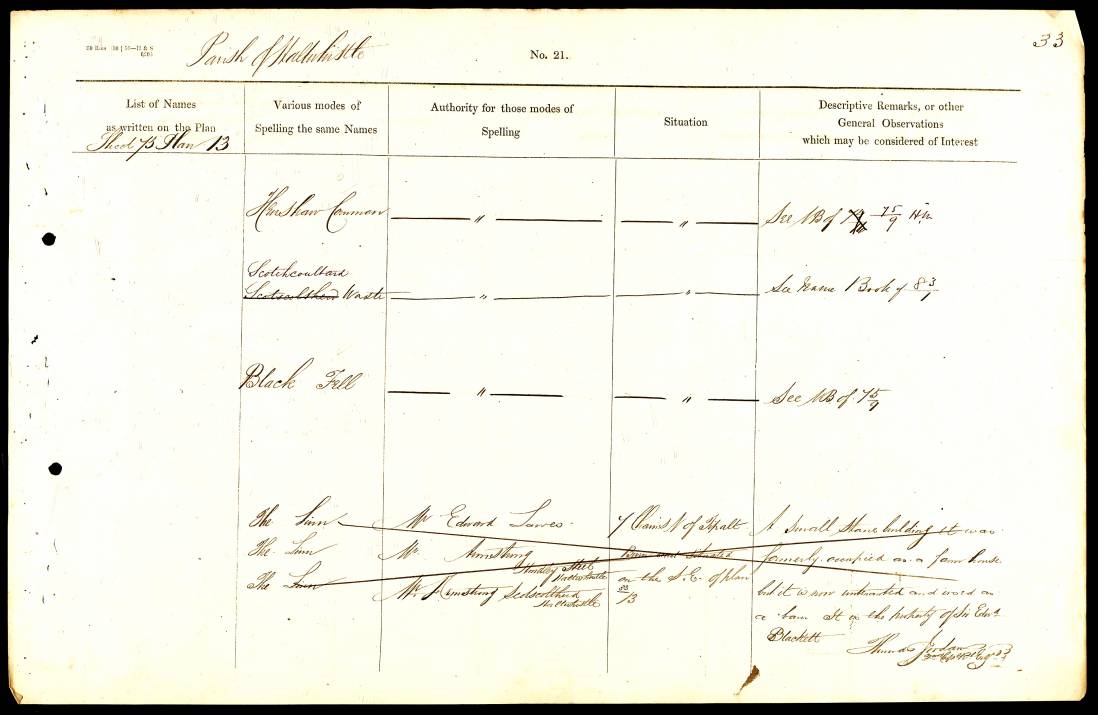 33
Parish of Haltwhistle
No. 21.
List of Names
as written on the Plan
Various modes of
Spelling the same Names
Authority for those modes of
Spelling
Situation
Descriptive Remarks, or other
General Observations
which may be considered of Interest
Plan 13
Henshaw Common " " See NB of 75/9
Scotchcoultard
Waste " " See Name Book of 83/1
Black Fell " " See NB of 75/9
The Linn Mr Edward Lowes 7 Chains N of A small stone building it was
The Linn Mr Armstrong Barn and situated formerly occupied as a farm house
The Linn Haltwhistle on the S.E. of plan
Mr Armstrong Haltwhistle 83/13 but it is now and used as
a barn It is the property of Sir Edwd
Blackett
Thomas Jordan